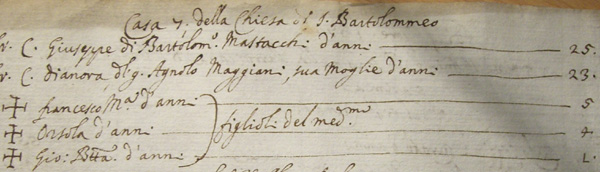 Casa 7. della Chiesa di S. Bartolommeo
C. Giuseppe di Bartolom.º Mattacchi d'anni 25.
C. Dianora del g. Agnolo Maggiani, sua Moglie d'anni 23.
Francesco M.ª d'anni 5
Orsola d'anni figlioli del med.mo 4
Gio: Btta. d'anni 1.